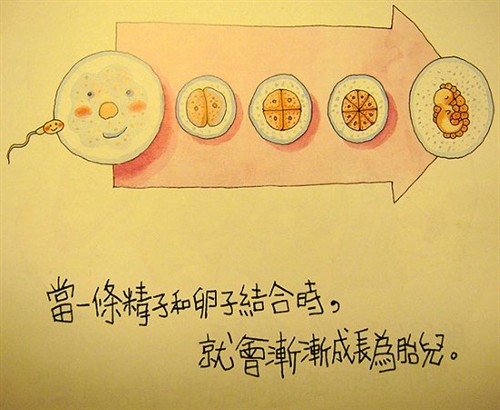 當一條精子和卵子結合時，
就會漸漸成長為胎兒。